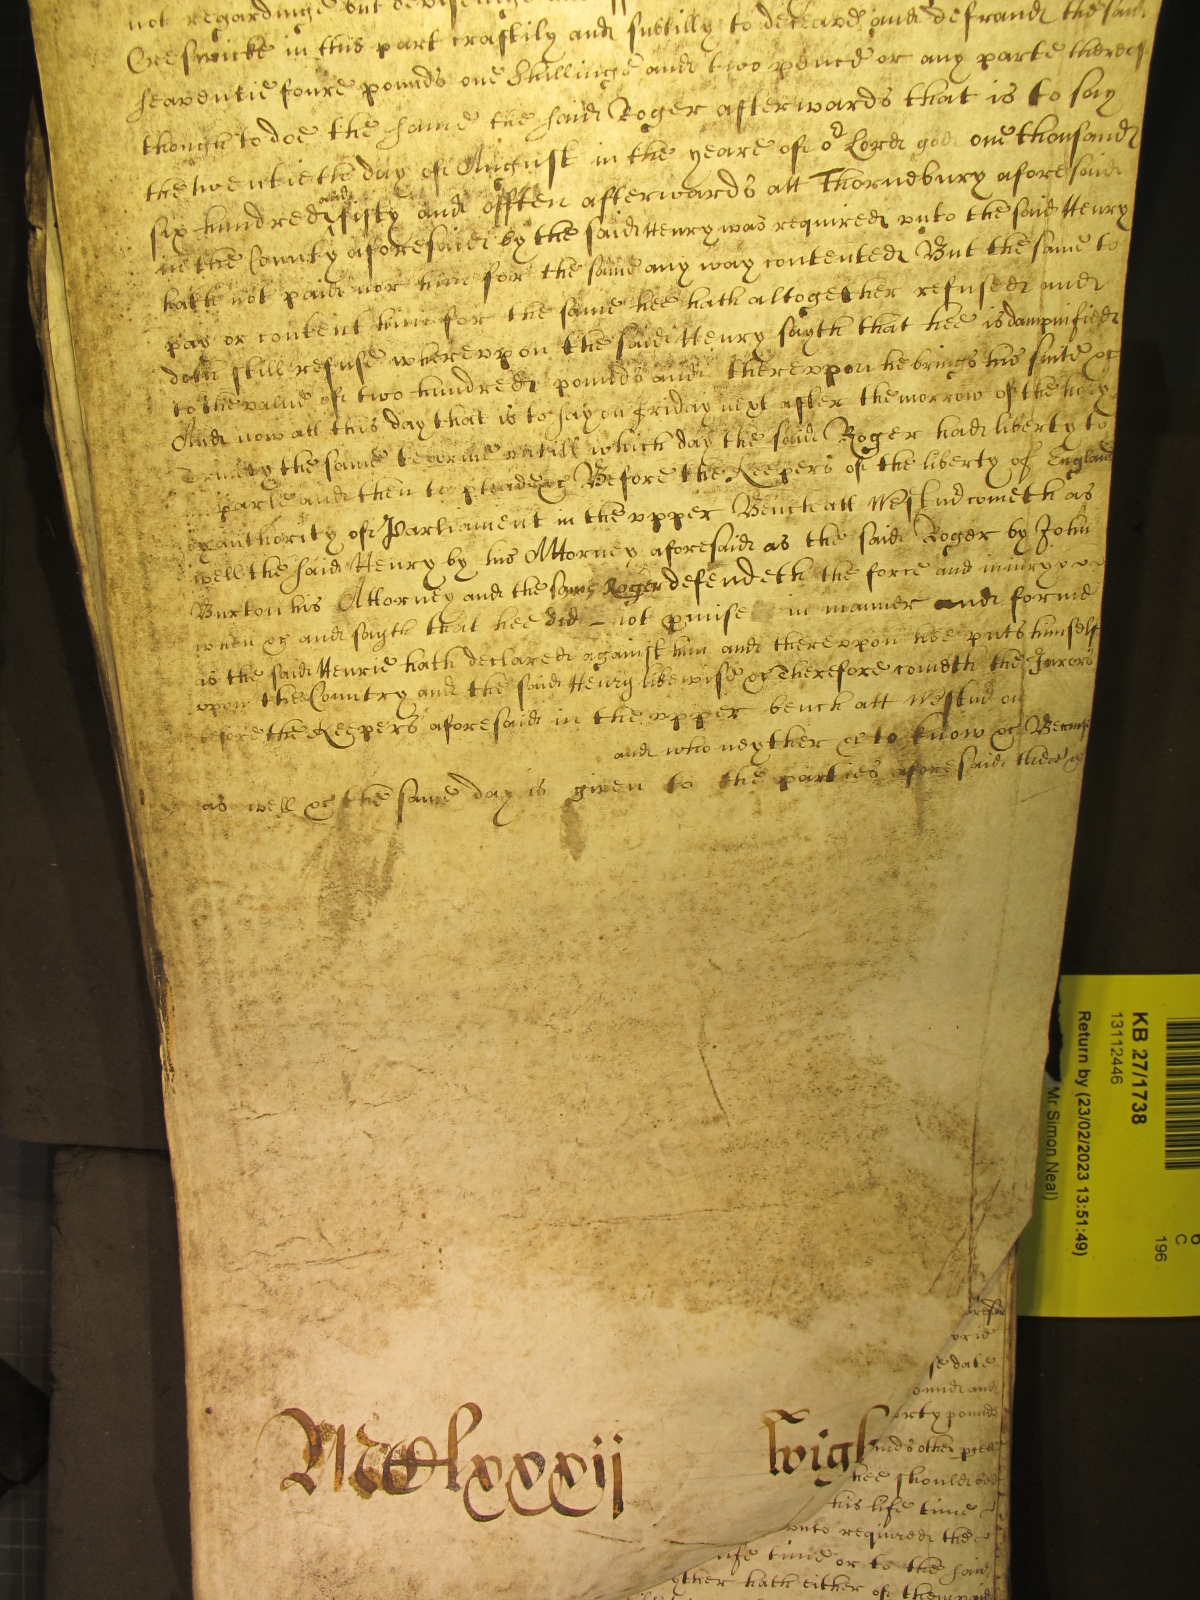 not regardinge but
Creswicke in this part craftily and subtilly to deceave and defraud the said
seaventie foure pounds one shillinge and two pence or any parte thereof
though to doe the same the said Roger afterwards that is to say
the twentieth day of August in the yeare of oʳ Lord god one thousand
six hundred and fifty and often afterwards att Thornebury aforesaid
in the County aforesaid by the said Henry was required unto the said Henry
hath not paid nor him for the same any way contented But the same to
pay or content him for the same hee hath altogether refused and
doth still refuse whereupon the said Henry sayth that hee is dampnified
to the value of two hundred pounds and thereupon he brings his suite &c
And now att this day that is to say on Friday next after the morrow of the holy
Trinity the same tearme untill which day the said Roger had liberty to
parle and then to pleade &c Before the Keepers of the liberty of England
authority of Parliament in the upper Bench att Westm cometh as
well the said Henry by his Attorney aforesaid as the said Roger by John
Burton his Attorney and the same Roger defendeth the force and iniury
when &c and sayth that hee did not pmise in manner and forme
as the said Henrie hath declared against him and thereupon hee puts himself
upon the Country and the said Henry likewise &c Therefore cometh the Jurors
before the Keepers aforesaid in the upper bench att Westm on
and who neyther &c to know &c Because
as well &c the same day is given to the parties aforesaid there &c
MClxxxij
Wigh
se date
ounds and
orty pounds
nds other
hee should
his life time
unto required the
life time or to the said
other hath either of them paid
KB 27/1738
13112446
Return by (23/02/2023 13:51:49)
Mr Simon Neal)
6
C
196